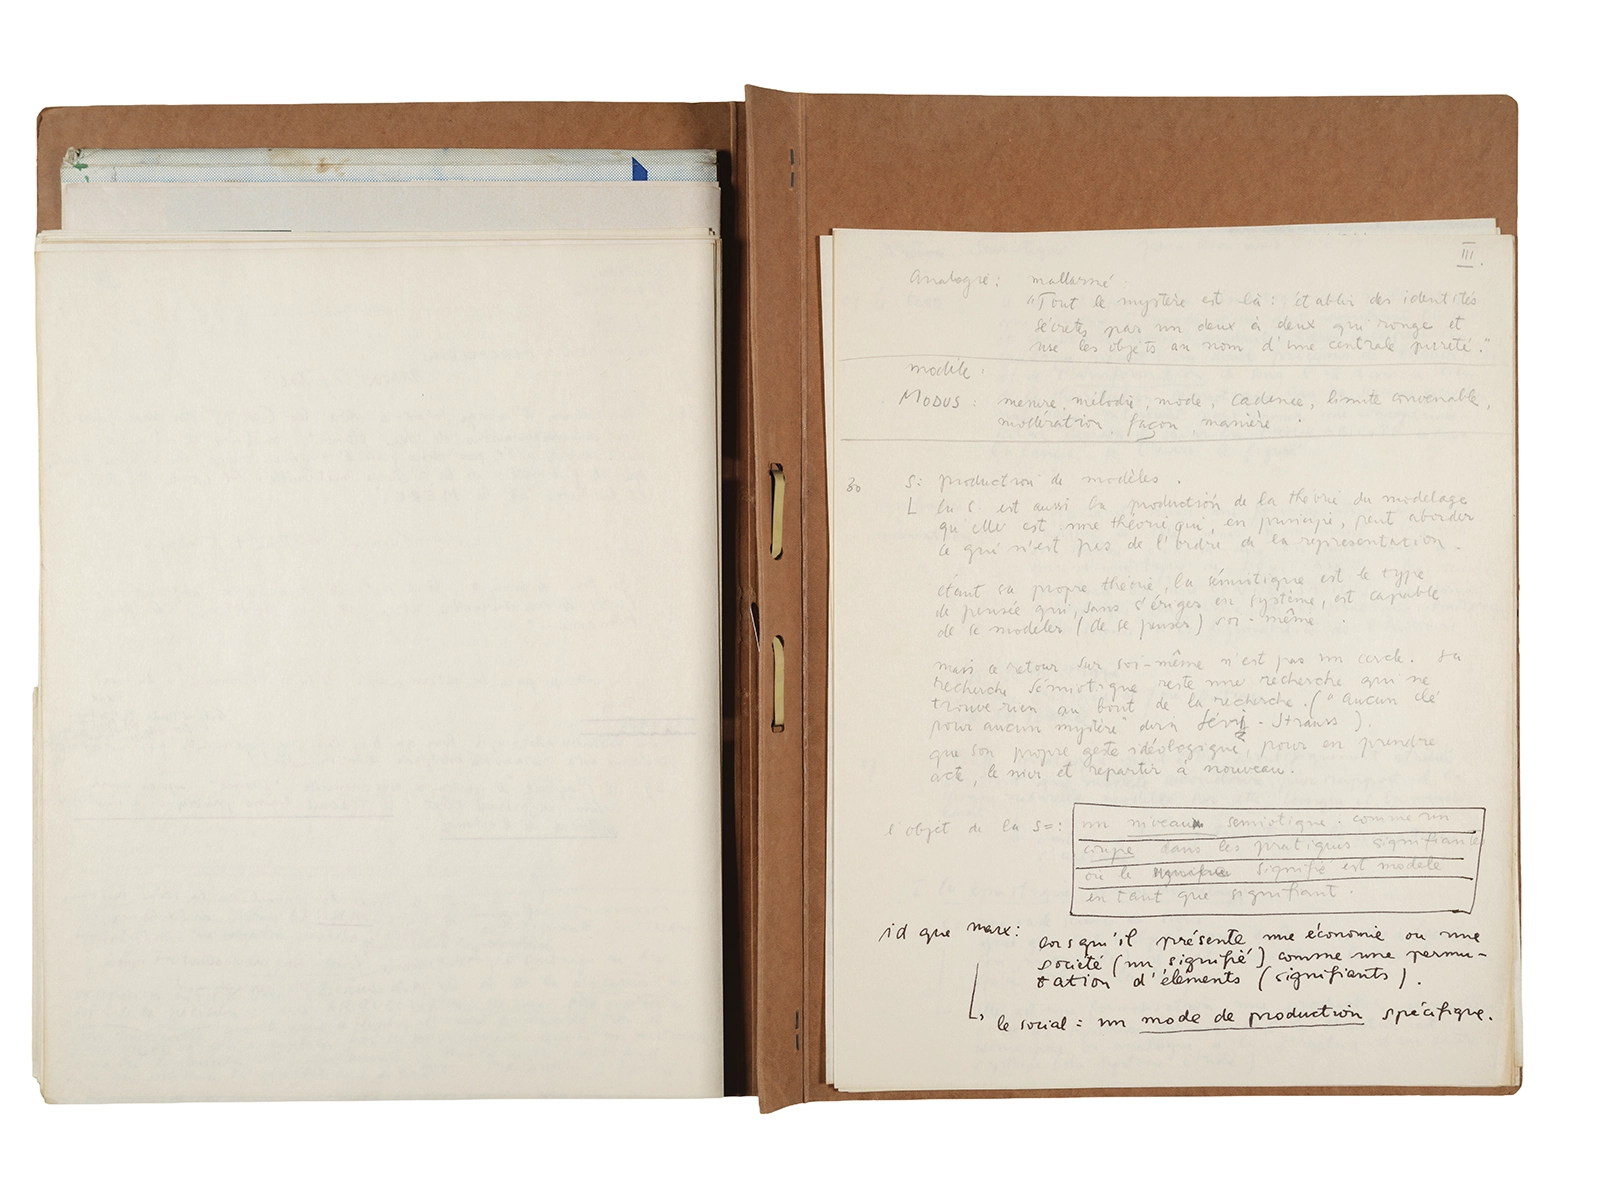 III.
Analogie : mallarmé :
"Tout le mystère est là : établir des identités
secrètes par un deux à deux qui ronge et
use les objets au nom d'une centrale pureté."
modèle :
MODUS : mesure, mélodie, mode, cadence, limite convenable,
modération, façon, manière.
30 S : production de modèles.
La S. est aussi la production de la théorie du modelage
qu'elle est une théorie qui, en principe, peut aborder
ce qui n'est pas de l'ordre de la représentation.
étant sa propre théorie, la sémiotique est le type
de pensée qui, sans s'ériger en système, est capable
de se modeler (de se penser) soi-même.
mais ce retour sur soi-même n'est pas un cercle. La
recherche sémiotique reste une recherche qui ne
trouve rien au bout de la recherche. ("aucun clé
pour aucun mystère" Lévi-Strauss).
que son propre geste idéologique, pour en prendre
acte, le nier et repartir à nouveau.
l'objet de la S= : un niveau semiotique : comme un
coupe dans les pratiques signifiantes
où le signifié est modelé
en tant que signifiant.
id que marx : lorsqu'il présente une économie ou une
société (un signifié) comme une permu-
tation d'éléments (signifiants).
le social = un mode de production spécifique.